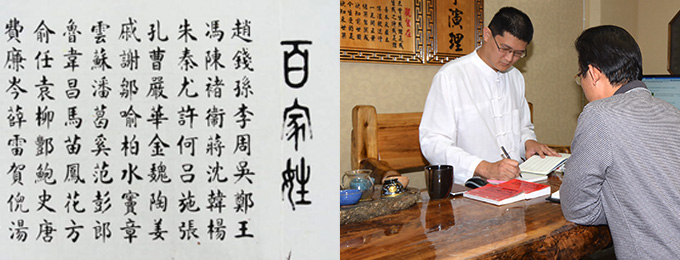 百家姓
趙錢孫李周吳鄭王
馮陳褚衛蔣沈韓楊
朱秦尤許何呂施張
孔曹嚴華金魏陶姜
戚謝鄒喻柏水竇章
雲蘇潘葛奚范彭郎
魯韋昌馬苗鳳花方
俞任袁柳酆鮑史唐
費廉岑薛雷賀倪湯
演理